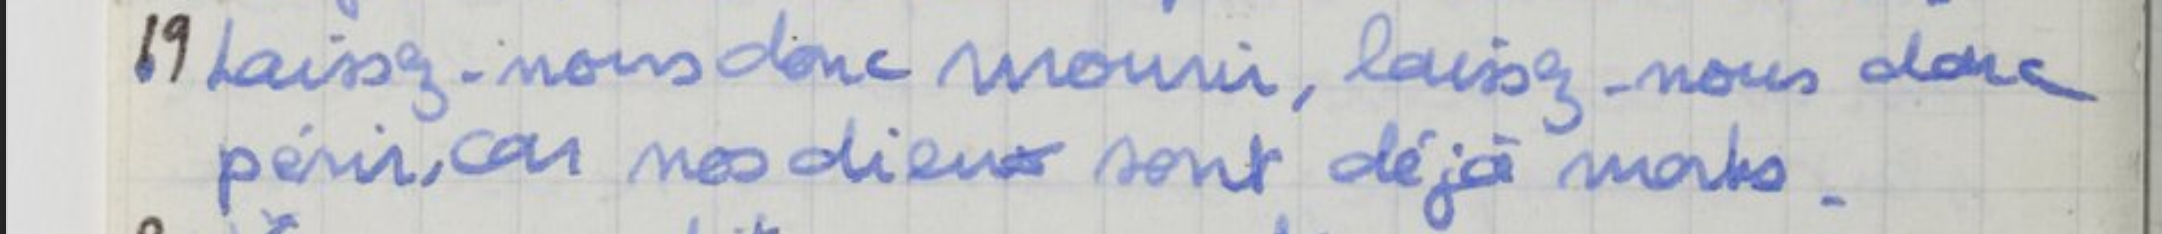 19 Laissez-nous donc mourir, laissez-nous donc
périr, car nos dieux sont déjà morts.